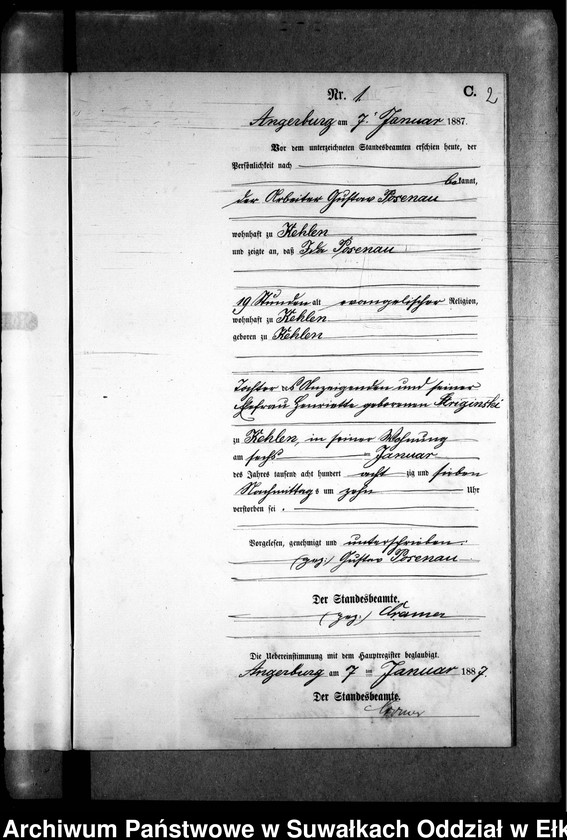 Nr. 1. C. 2
Angerburg am 7. Januar 1887.
Vor dem unterzeichneten Standesbeamten erschien heute, der
Persönlichkeit nach
bekannt,
der Arbeiter Gustav Posenau
wohnhaft zu Kehlen
und zeigte an, daß Ida Posenau
19 Stunden alt evangelischer Religion,
wohnhaft zu Kehlen
geboren zu Kehlen
Tochter des Anzeigenden und seiner
Ehefrau Henriette geborenen Kriginski
zu Kehlen, in seiner Wohnung
am sechs ten Januar
des Jahres tausend acht hundert acht zig und sieben
Nachmittags um zehn Uhr
verstorben sei.
Vorgelesen, genehmigt und unterschrieben.
(gez:) Gustav Posenau
Der Standesbeamte.
(gez:) Cramer
Die Uebereinstimmung mit dem Hauptregister beglaubigt.
Angerburg am 7 ten Januar 1887.
Der Standesbeamte.
Cramer
Archiwum Państwowe w Suwałkach Oddział w Ełk